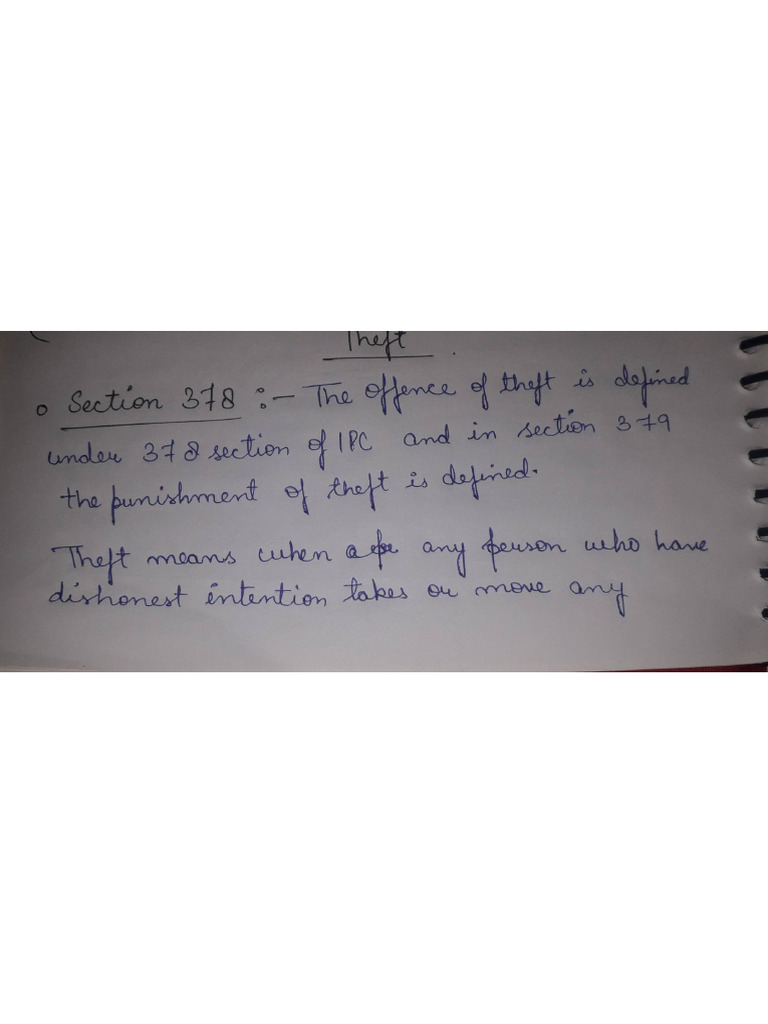 Theft
Section 378 :- The offence of theft is defined
under 378 section of IPC and in section 379
the punishment of theft is defined.
Theft means when any person who have
dishonest intention takes or move any